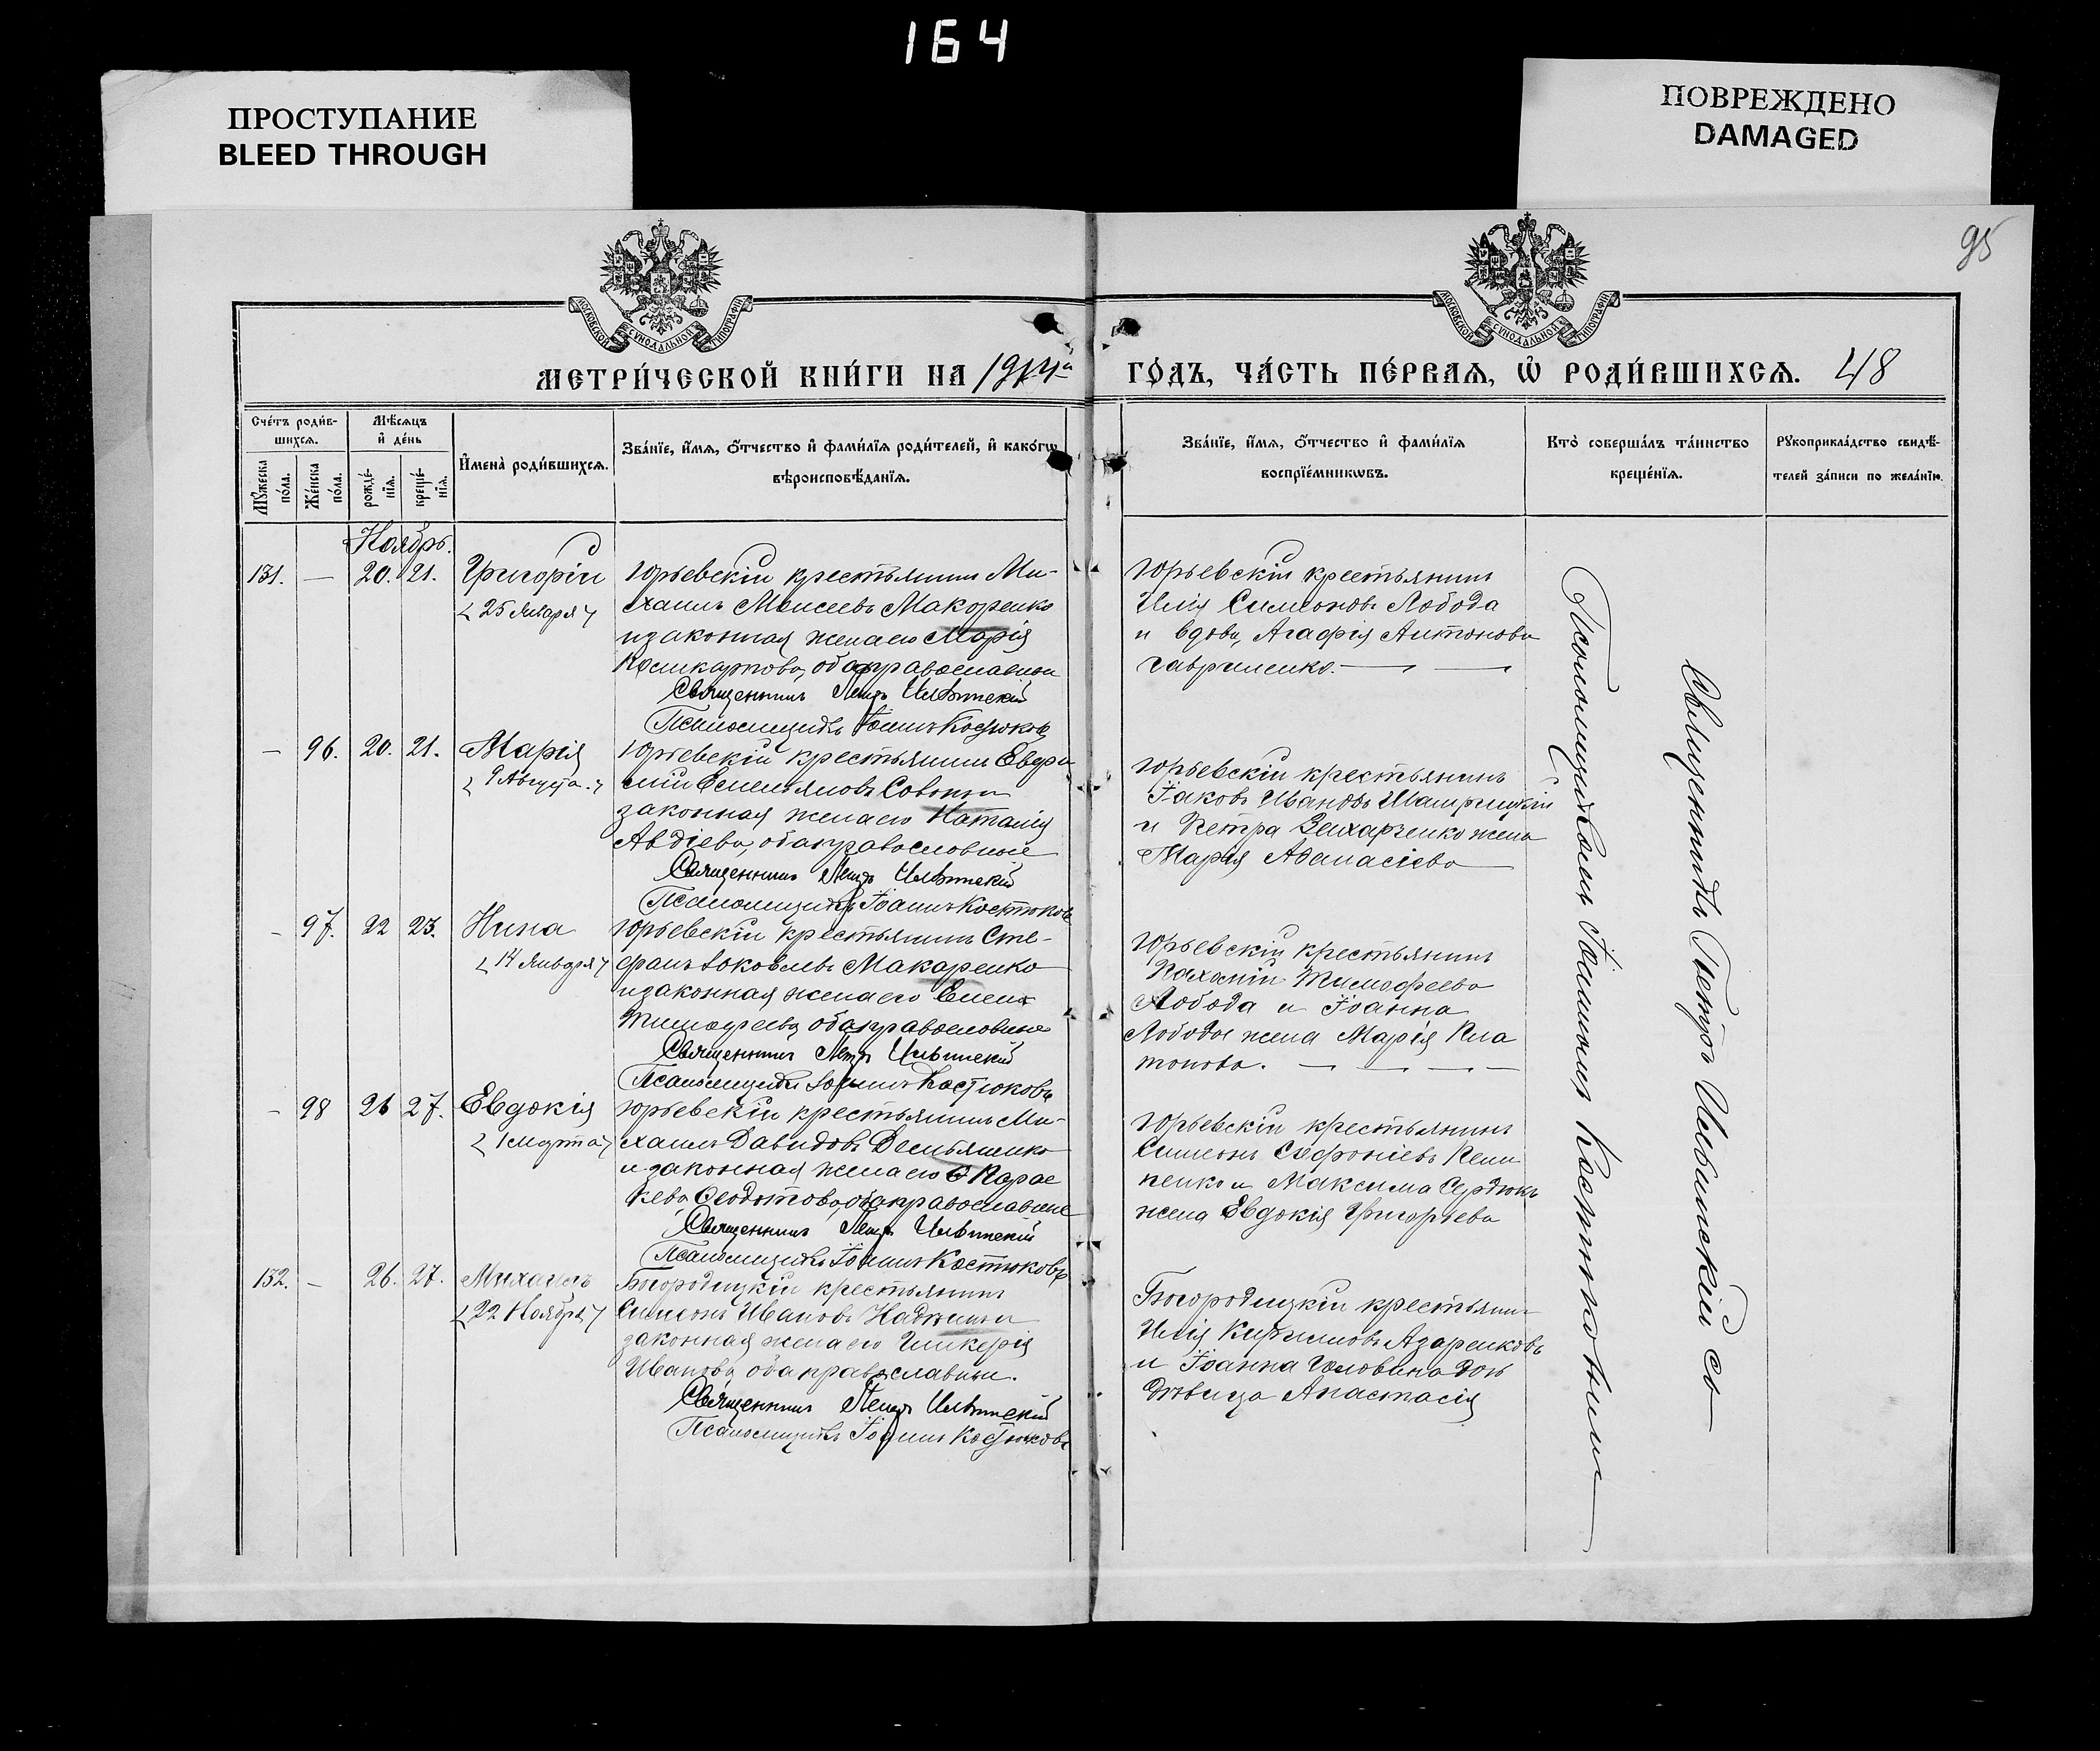 164
ПРОСТУПАНИЕ
BLEED THROUGH
ПОВРЕЖДЕНО
DAMAGED
95
МОСКОВСКОЙ СѴНОДАЛЬНОЙ ТИПОГРАФІИ
МОСКОВСКОЙ СѴНОДАЛЬНОЙ ТИПОГРАФІИ
МЕТРИ́ЧЕСКОЙ КНИ́ГИ НА 1914й ГО́ДЪ, ЧА́СТЬ ПЕ́РВАЯ, Ѡ РОДИ́ВШИХСЯ. 48
Сче́тъ роди́в-
шихся.
Мѣ́сяцъ
и де́нь
Му́жеска
по́ла.
Же́нска
по́ла.
рожде́-
нія.
креще́-
нія.
Имена̀ роди́вшихся.
Зва́ніе, и́мя, о́тчество и фами́лія роди́телей, и како́гѡ
вѣроисповѣ́данія.
Зва́ніе, и́мя, о́тчество и фами́лія
воспріе́мникѡвъ.
Кто̀ соверша́лъ та́инство
креще́нія.
Рукоприкла́дство свидѣ́-
телей за́писи по жела́нію.
Ноябрь.
131. — 20. 21. Григорій
25 Января
Юрьевскій крестьянинъ Ми-
хаилъ Моисеевъ Макаренко
и законная жена его Марія
Поликарпова, оба православные
Священникъ Петръ Ильинскій
Псаломщикъ Іоаннъ Костюковъ
Юрьевскій крестьянинъ
Илія Симеоновъ Лобода
и вдова, Агафія Антонова
Гавриленко. — —
— 96. 20. 21. Марія
9 Августа.
Юрьевскій крестьянинъ Евфи
мій Емельяновъ
законная жена его Наталія
Авдіева, оба православные
Священникъ Петръ Ильинскій
Псаломщикъ Іоаннъ Костюковъ
Юрьевскій крестьянинъ
Іаковъ Ивановъ
и Петра Захарченко жена
Марія Афанасіева —
- 97. 22 23. Нина
14 Января
Юрьевскій крестьянинъ Сте-
фанъ Іаковлевъ Макаренко
и законная жена его Елена
Тимофеева оба православные
Священникъ Петръ Ильинскій
Псаломщикъ Іоаннъ Костюковъ
Юрьевскій крестьянинъ
Тимофеевъ
Лобода и Іоанна
Лободы жена Марія Пла
тонова. — — — —
- 98 26 27. Евдокія
1 Марта
Юрьевскій крестьянинъ Ми-
хаилъ Давидовъ Демьяненко
и законная жена его Парас
кева Феодотова, оба православные
Священникъ Петръ Ильинскій
Псаломщикъ Іоаннъ Костюковъ
Юрьевскій крестьянинъ
Симеонъ Софоніевъ
и Максима Сердюкъ
жена Евдокія Григорьева
132. — 26. 27. Михаилъ
22 Ноября
Богородицкій крестьянинъ
Симеонъ Ивановъ
законная жена его Гликерія
Иванова оба православные.
Священникъ Петръ Ильинскій
Псаломщикъ Іоаннъ Костюковъ
Богородицкій крестьянинъ
Илія Азаренковъ
и Іоанна Головина дочь
дѣвица Анастасія
Священникъ Петръ Ильинскій съ
Псаломщикомъ Іоанномъ Костюковымъ